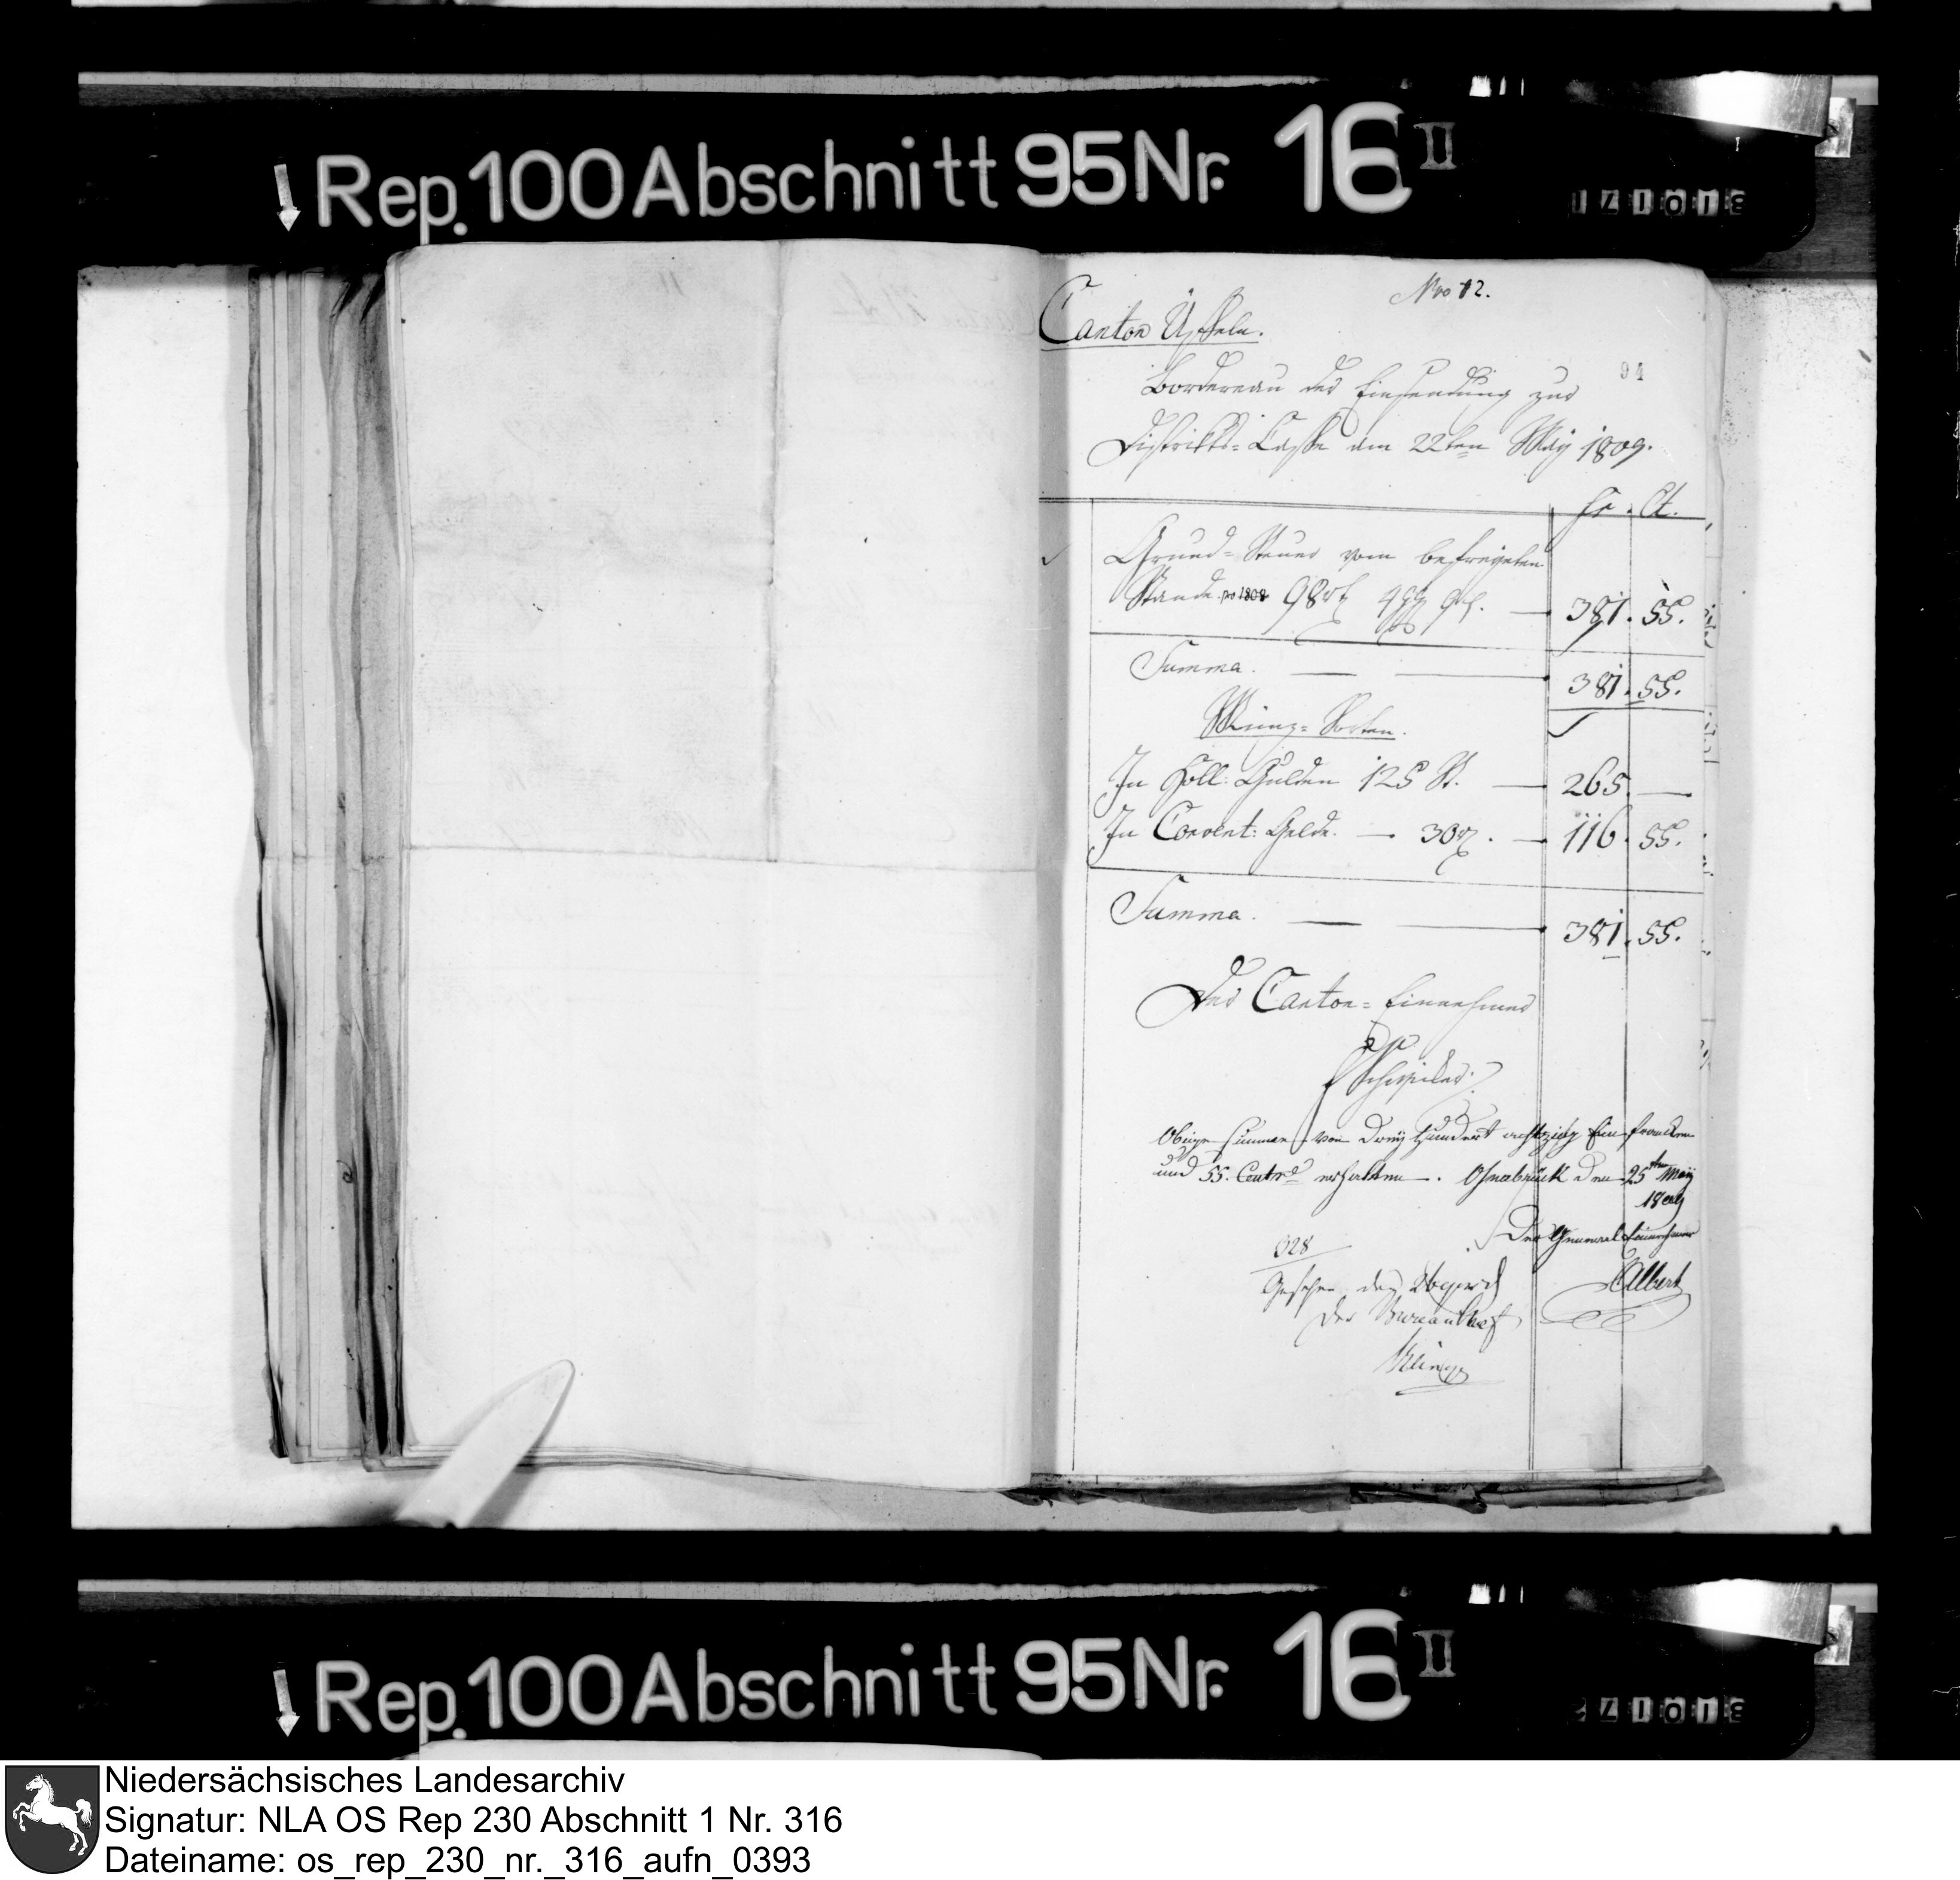 Rep. 100 Abschnitt 95 Nr. 16 II
Nro 12.
Canton Üffeln.
94
Bordereau der Einsendung zur
Distrikts-Casse am 22ten May 1809.
Fr. Ct.
Grund-Steuer vom befreyeten
Stande pro 1808 98 rt 4 ggr 9 d. — 381. 55.
Summa. — — 381. 55.
Münz-Sorten.
In Holl: Gulden 125 St. — 265. —
In Convent: Gelde. — 30 rt. — 116. 55.
Summa. — — 381. 55.
Der Canton-Einnehmer
Obige Summe von Drey hundert achtzig Ein Franken
und 55. Cents erhalten. Osnabrück den 25ten May
1809
Der General Einnehmer
Albers
328
Gesehen
Der Bureau Chef
Rep. 100 Abschnitt 95 Nr. 16 II
Niedersächsisches Landesarchiv
Signatur: NLA OS Rep 230 Abschnitt 1 Nr. 316
Dateiname: os_rep_230_nr._316_aufn_0393